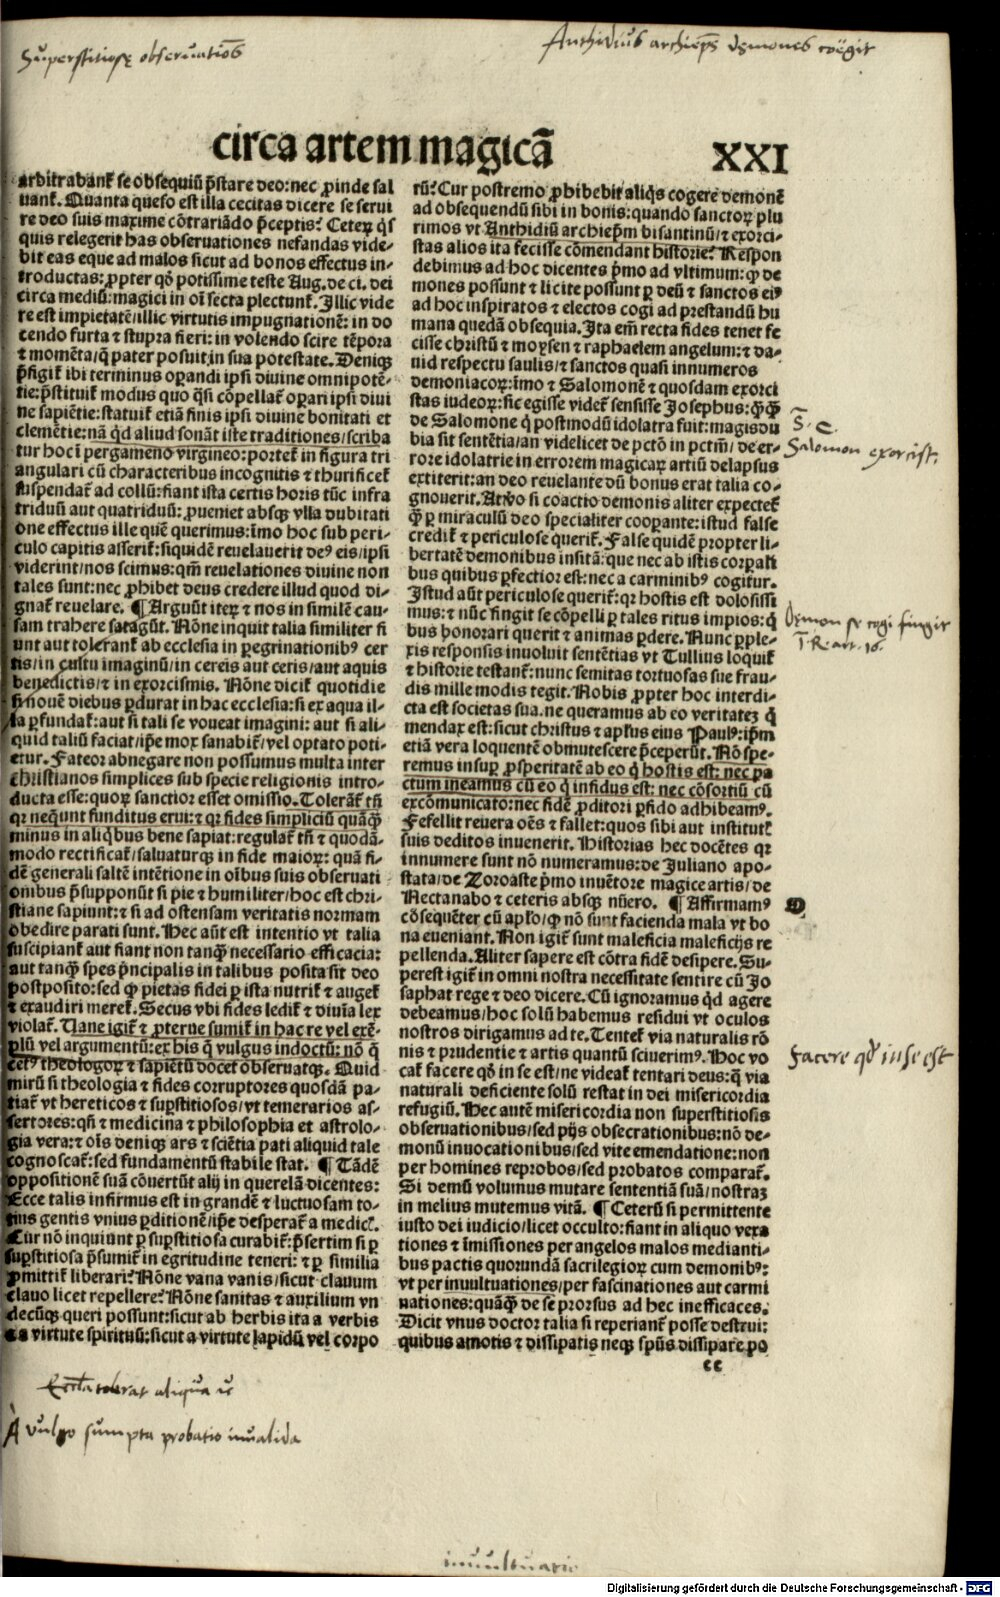 Superstitiosę obseruatiões
Anthidius archiep̃s dęmones coëgit
circa artem magicā
XXI
arbitrabanť se obsequiũ p̃stare deo: nec ꝓinde sal
uanť. Quanta queso est illa cecitas dicere se serui
re deo suis maxime cõtrariãdo p̃ceptis? Ceteꝝ q̃s
quis relegerit has obseruationes nefandas vide-
bit eas eque ad malos sicut ad bonos effectus in-
troductas: ꝓpter qõ potissime teste Aug. de ci. dei
circa mediũ: magici in oĩ secta plectunť. Illic vide
re est impietatẽ/ illic virtutis impugnationẽ: in do
cendo furta ⁊ stupra fieri: in volendo scire tẽpora
⁊ momẽta/ q̃ pater posuit in sua potestate. Deniqꝫ
p̃figiť ibi terminus oꝑandi ipsi diuine omnipotẽ-
tie: p̃stituiť modus quo q̃si cõpellať oꝑari ipsi diui
ne sapiẽtie: statuiť etiã finis ipsi diuine bonitati et
clemẽtie: nã qd̃ aliud sonãt iste traditiones/ scriba
tur hoc ĩ pergameno virgineo: porteť in figura tri
angulari cũ characteribus incognitis ⁊ thurificeť
suspendať ad collũ: fiant ista certis horis tũc infra
triduũ aut quatriduũ: ꝓueniet absqꝫ vlla dubitati
one effectus ille quẽ querimus: ĩmo hoc sub peri-
culo capitis asseriť: siquidẽ reuelauerit deꝰ eis/ ipsi
viderint/ nos scimus: qm̃ reuelationes diuine non
tales sunt: nec ꝓhibet deus credere illud quod di-
gnať reuelare. ¶ Arguũt iteꝝ ⁊ nos in similẽ cau-
sam trahere satagũt. Nõne inquit talia similiter fi
unt aut toleranť ab ecclesia in ꝑegrinationibꝰ cer
tis/ in cultu imaginũ/ in cereis aut ceris/ aut aquis
benedictis/ ⁊ in exorcismis. Nõne diciť quotidie
si nouẽ diebus ꝑdurat in hac ecclesia: si ex aqua il-
la ꝑfundať: aut si tali se voueat imagini: aut si ali-
quid taliũ faciat/ ip̃e mox sanabiť/ vel optato poti-
etur. Fateor abnegare non possumus multa inter
christianos simplices sub specie religionis intro-
ducta esse: quoꝝ sanctior esset omissio. Toleranť tñ
qꝛ neq̃unt funditus erui: ⁊ qꝛ fides simpliciũ quãq̃
minus in aliq̃bus bene sapiat: regulať tñ ⁊ quodã-
modo rectificať/ saluaturqꝫ in fide maioꝝ: quã fi-
dẽ generali saltẽ intẽtione in oĩbus suis obseruati
onibus p̃supponũt si pie ⁊ humiliter/ hoc est chri-
stiane sapiunt: ⁊ si ad ostensam veritatis normam
obedire parati sunt. Hec aũt est intentio vt talia
suscipianť aut fiant non tanq̃ necessario efficacia:
aut tanq̃ spes p̃ncipalis in talibus posita sit deo
postposito: sed ꝙ pietas fidei ꝑ ista nutriť ⁊ augeť
⁊ exaudiri mereť. Secus vbi fides lediť ⁊ diuĩa lex
violať. Uane igiť ⁊ ꝓterue sumiť in hac re vel exẽ-
plũ vel argumentũ: ex his q̃ vulgus indoctũ: nõ q̃
cetꝰ theologoꝝ ⁊ sapiẽtũ docet obseruatqꝫ. Quid
mirũ si theologia ⁊ fides corruptores quosdã pa-
tiať vt hereticos ⁊ suꝑstitiosos/ vt temerarios as-
sertores: qñ ⁊ medicina ⁊ philosophia et astrolo-
gia vera: ⁊ oĩs deniqꝫ ars ⁊ sciẽtia pati aliquid tale
cognoscať: sed fundamentũ stabile stat. ¶ Tãdẽ
oppositionẽ suã cõuertũt alij in querelã dicentes:
Ecce talis infirmus est in grandẽ ⁊ luctuosam to-
tius gentis vnius ꝑditionẽ/ ip̃e desperať a medicꝭ.
Cur nõ inquiunt ꝑ suꝑstitiosa curabiť: p̃sertim si ꝑ
suꝑstitiosa p̃sumiť in egritudine teneri: ⁊ ꝑ similia
ꝓmittiť liberari? Nõne vana vanis/ sicut clauum
clauo licet repellere? Nõne sanitas ⁊ auxilium vn
decũqꝫ queri possunt: sicut ab herbis ita a verbis
⁊ a virtute spirituũ: sicut a virtute lapidũ vel corpo
rũ? Cur postremo ꝓhibebit aliq̃s cogere demonẽ
ad obsequendũ sibi in bonis: quando sanctoꝝ plu
rimos vt Anthidiũ archiep̃m bisantinũ/ ⁊ exorci-
stas alios ita fecisse cõmendant historie? Respon
debimus ad hoc dicentes p̃mo ad vltimum: ꝙ de
mones possunt ⁊ licite possunt ꝑ deũ ⁊ sanctos eiꝰ
ad hoc inspiratos ⁊ electos cogi ad prestandũ hu
mana quedã obsequia. Ita em̃ recta fides tenet fe
cisse christũ ⁊ moysen ⁊ raphaelem angelum: ⁊ da-
uid respectu saulis/ ⁊ sanctos quasi innumeros
demoniacoꝝ: ĩmo ⁊ Salomonẽ ⁊ quosdam exorci
stas iudeoꝝ: sic egisse videť sensisse Josephus: q̃q̃
de Salomone q̃ postmodũ idolatra fuit: magis du
bia sit sentẽtia/ an videlicet de pctõ in pctm̃/ de er-
rore idolatrie in errorem magicaꝝ artiũ delapsus
extiterit: an deo reuelante dũ bonus erat talia co-
gnouerit. At vo si coactio demonis aliter expecteť
q̃ ꝑ miraculũ deo specialiter cooꝑante: istud false
crediť ⁊ periculose queriť. False quidẽ propter li-
bertatẽ demonibus insitã: que nec ab istis corꝑali
bus quibus ꝑfectior est: nec a carminibꝰ cogitur.
Istud aũt periculose queriť: qꝛ hostis est dolosissi
mus: ⁊ tũc fingit se cõpelli ꝑ tales ritus impios: q̃
bus honorari querit ⁊ animas ꝑdere. Nunc ꝑple-
xis responsis inuoluit sentẽtias vt Tullius loquiť
⁊ historie testanť: nunc semitas tortuosas sue frau-
dis mille modis tegit. Nobis ꝓpter hoc interdi-
cta est societas sua. ne queramus ab eo veritatez q̃
mendax est: sicut christus ⁊ apłus eius Paulꝰ: ip̃m
etiã vera loquentẽ obmutescere p̃ceperũt. Nõ spe-
remus insuꝑ ꝓsperitatẽ ab eo q̃ hostis est: nec pa
ctum ineamus cũ eo q̃ infidus est: nec cõsortiũ cũ
excõmunicato: nec fidẽ ꝓditori ꝑfido adhibeamꝰ.
Fefellit reuera oẽs ⁊ fallet: quos sibi aut institutꝭ
suis deditos inuenerit. Historias hec docẽtes qꝛ
innumere sunt nõ numeramus: de Juliano apo-
stata/ de Zoroaste p̃mo inuẽtore magice artis/ de
Nectanabo ⁊ ceteris absqꝫ nũero. ¶ Affirmamꝰ
cõsequẽter cũ apło/ ꝙ nõ sunt facienda mala vt bo
na eueniant. Non igiť sunt maleficia maleficijs re
pellenda. Aliter sapere est cõtra fidẽ desipere. Su-
perest igiť in omni nostra necessitate sentire cũ Jo
saphat rege ⁊ deo dicere. Cũ ignoramus qd̃ agere
debeamus/ hoc solũ habemus residui vt oculos
nostros dirigamus ad te. Tenteť via naturalis rõ
nis ⁊ prudentie ⁊ artis quantũ sciuerimꝰ. Hoc vo
cať facere qõ in se est/ ne videať tentari deus: q̃ via
naturali deficiente solũ restat in dei misericordia
refugiũ. Hec autẽ misericordia non superstitiosis
obseruationibus/ sed pijs obsecrationibus: nõ de-
monũ inuocationibus/ sed vite emendatione: non
per homines reprobos/ sed probatos comparať.
Si demũ volumus mutare sententiã suã/ nostraz
in melius mutemus vitã. ¶ Ceterũ si permittente
iusto dei iudicio/ licet occulto: fiant in aliquo vexa
tiones ⁊ ĩmissiones per angelos malos medianti-
bus pactis quorundã sacrilegioꝝ cum demonibꝰ:
vt per inuultuationes/ per fascinationes aut carmi
nationes: quãq̃ de se prorsus ad hec inefficaces.
Dicit vnus doctor talia si reperianť posse destrui:
quibus amotis ⁊ dissipatis neqꝫ spũs dissipare po
cc
Salomon exorcist.
Dęmon se cogi fingit
T. R. art. 16.
D
facere qd̃ in se est
Eccl̃a tolerat aliqua
A vulgo sumpta probatio inualida
inuultuatio
Digitalisierung gefördert durch die Deutsche Forschungsgemeinschaft - DFG